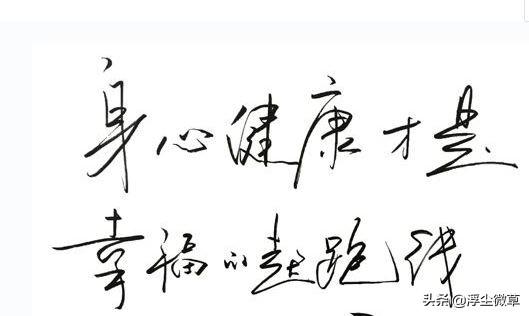 身心健康才是
幸福的起跑线
头条@浮尘微草